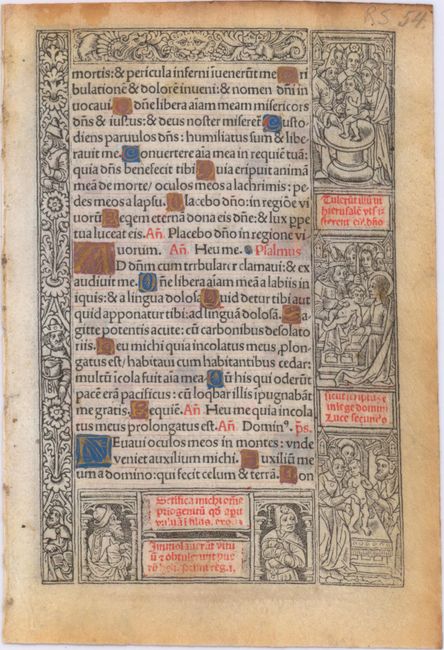 RS. 54.
mortis: & pericula inferni īuenerūt me. Tri
bulationē & dolorē inueni: & nomen dñi in
uocaui. O dñe libera aīam meam misericors
dñs & iustus: & deus noster miseret̄. Custo
diens paruulos dñs: humiliatus sum & libe
rauit me. Conuertere aīa mea in requiē tuā:
quia dñs benefecit tibi. Quia eripuit animā
meā de morte/ oculos meos a lachrimis: pe
des meos a lapsu. Placebo dño: in regiōe vi
uorū. Requiem eterna dona eis dñe: & lux ꝑpe
tua luceat eis. Añ. Placebo dño in regione vi
uorum. Añ. Heu me. Psalmus
AD dñm cum tribularer clamaui: & ex
audiuit me. Dñe libera aīam mea a labiis in
iquis: & a lingua dolosa. Quid detur tibi aut
quid apponatur tibi: ad linguā dolosā. Sa
gitte potentis acute: cū carbonibus desolato
riis. Heu michi quia incolatus meus ꝓlon
gatus est/ habitaui cum habitantibus cedar:
multū īcola fuit aīa mea. Cū his qui oderūt
pacē erā pacificus: cū loq̄bar illis ipugnabāt
me gratis. Requiē. Añ. Heu me quia incola
tus meus prolongatus est. Añ. Dominꝰ. ps.
LEuaui oculos meos in montes: vnde
veniet auxilium michi. Auxiliū me
um a domino: qui fecit celum & terrā. Non
Tulerūt illū in
hierusalē vt si
sterent eū dño
sicut scriptū ē
in lege domini
Luce secundo
Sctifica michi oīne
primogenitū qd̄ aperit
vuluā ī filiis. exo.
Immolauerūt vitu
lū & obtulerūt pue
rū heli. primi reg. i.